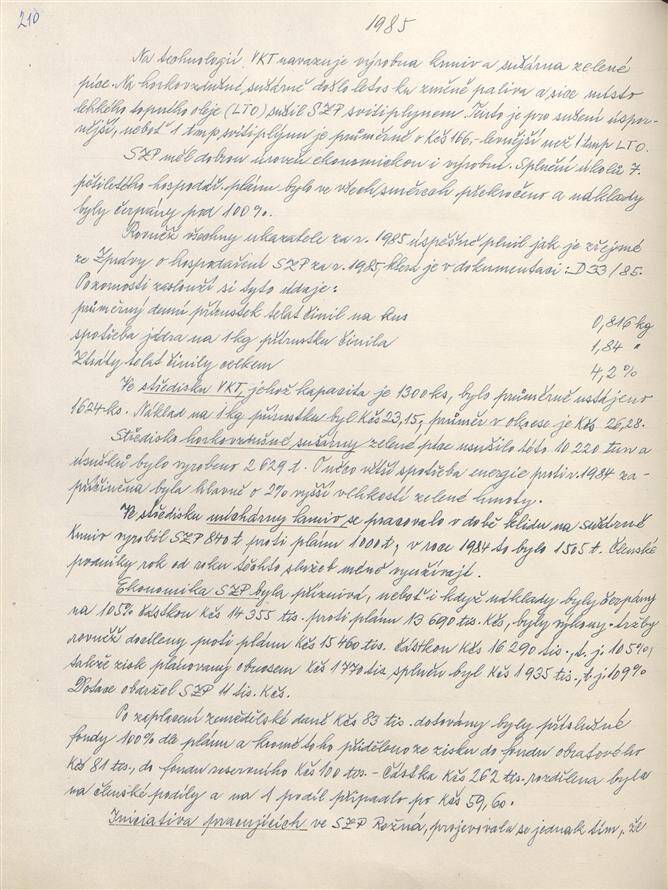 210
1985
Na technologii VKT navazuje výrobna krmiv a sušárna zelené
píce. Na horkovzdušné sušárně došlo letos ku změně paliva a sice místo
lehkého topného oleje (LTO) sušil SZP svítiplynem. Tento je pro sušení úspor-
nější, neboť 1 tmp svítiplynu je průměrně o Kčs 166,- levnější než 1 tmp LTO.
SZP měl dobrou úroveň ekonomickou i výrobní. Splnění úkolů 7.
pětiletého hospodář. plánu bylo ve všech směrech překročeno a náklady
byly čerpány pod 100%.
Rovněž všechny ukazatele za r. 1985 úspěšně plnil jak je zřejmé
ze Zprávy o hospodaření SZP za r. 1985, která je v dokumentaci: D 33/85.
Pozornosti zaslouží si tyto údaje:
průměrný denní přírustek telat činil na kus 0,816 kg
spotřeba jádra na 1 kg přírustku činila 1,84 "
Ztráty telat činily celkem 4,2 %
Ve středisku VKT, jehož kapacita je 1300 ks, bylo průměrně ustájeno
1624 ks. Náklad na 1 kg přírustku byl Kčs 23,15, průměr v okrese je Kčs 26,28.
Středisko horkovzdušné sušárny zelené píce usušilo této 10 220 tun a
úsušků bylo vyrobeno 2 629 t. O něco větší spotřeba energie proti r. 1984 za-
příčiněna byla hlavně o 2% vyšší vlhkostí zelené hmoty.
Ve středisku míchárny krmiv se pracovalo v době klidu na sušárně
Krmiv vyrobil SZP 840 t proti plánu 1000 t, v roce 1984 to bylo 1505 t. Členské
podniky rok od roku těchto služeb méně využívají.
Ekonomika SZP byla příznivá, neboť i když náklady byly čerpány
na 105% částkou Kčs 14 355 tis. proti plánu 13 690 tis. Kčs, byly výkony - tržby
rovněž docíleny proti plánu Kčs 15 460 tis. částkou Kčs 16 290 tis., t. j. 105%,
takže zisk plánovaný obnosem Kčs 1770 tis, splněn byl Kčs 1935 tis., t.j. 109%
Dotace obdržel SZP 11 tis. Kčs.
Po zaplacení zemědělské daně Kčs 83 tis. dotovány byly příslušné
fondy 100% dle plánu a kromě toho přiděleno ze zisku do fondu obratového
Kčs 81 tis., do fondu reservního Kčs 100 tis. - Částka Kčs 262 tis. rozdělena byla
na členské podíly a na 1 podíl připadlo po Kčs 59,60.
Iniciativa pracujících ve SZP Rožná, projevovala se jednak tím, že